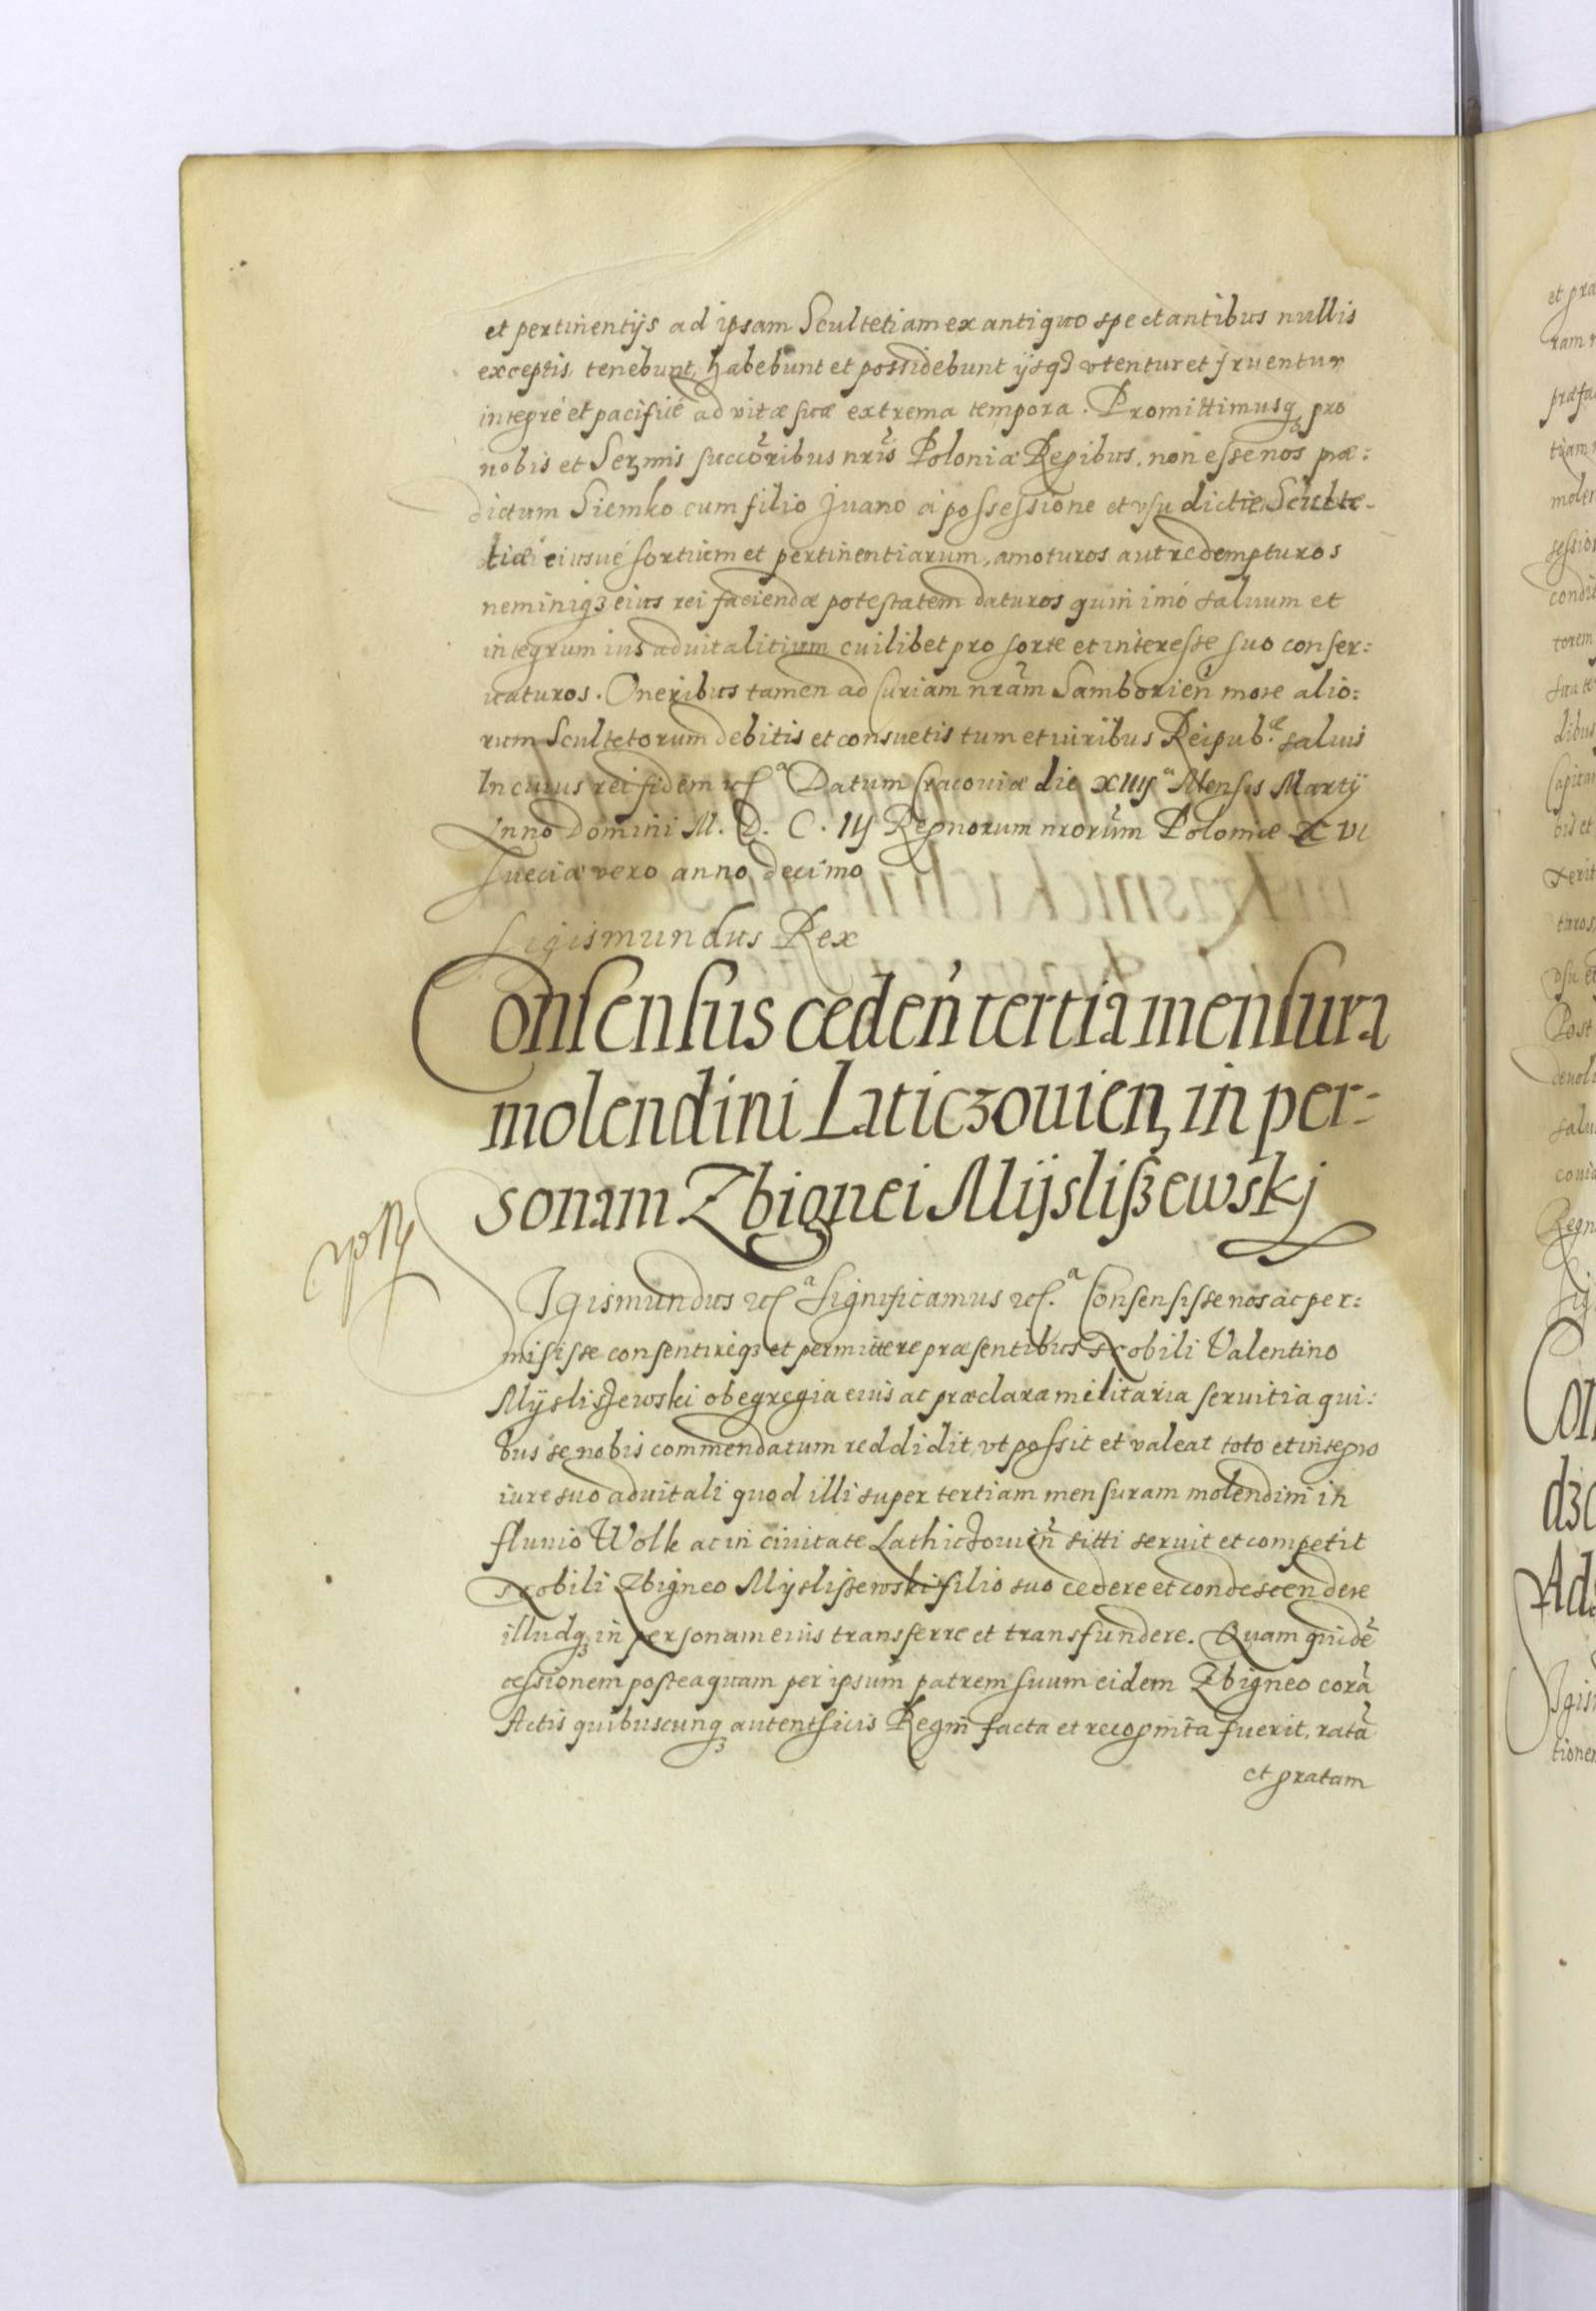 et pertinentijs ad ipsam Scultetiam ex antiquo spectantibus nullis
exceptis, tenebunt, habebunt et possidebunt ijsq3 vtentur et fruentur
integré et pacificé ad vitæ suæ extrema tempora. Promittimusq3 pro
nobis et Serzmis succoribus nris Poloniæ Regibus, non esse nos præ:
dictum Siemko cum filio Juano á possessione et vsu dictæ Sculte-
tiæ eiusué sortium et pertinentiarum, amoturos aut redempturos
neminiq3 eius rei faciendæ potestatem daturos quin imó saluum et
integrum ius aduitalitium cuilibet pro sorte et interesse suo conser:
uaturos. Oneribus tamen ad Curiam nram Samborien more alio:
rum Scultetorum debitis et consuetis tum et iuribus Reipub.æ saluis
In cuius rei fidem etc.a Datum Cracouiæ die XIIIJa Mensis Martij
Anno Domini M. D. C. IIJ Regnorum nrorum Poloniæ XVI
Sueciæ vero anno decimo
Sigismundus Rex
Consensus ceden tertia mensura
molendini Laticzouien, in per-
sonam Zbignei Mijslißewskj
Igismundus etc.a Significamus etc.a Consensisse nos ac per:
misisse consentireq3 et permittere præsentibus Nobili Valentino
Mijsliszewski ob egregia eius ac præclara militaria seruitia qui:
bus se nobis commendatum reddidit, vt possit et valeat toto et integro
iure suo aduitali quod illi super tertiam mensuram molendini in
fluuio Wolk ac in ciuitate Lathiczouien sitti seruit et competit
Nobili Zbigneo Mijslißewski filio suo cedere et condescendere
illudq3 in personam eius transferre et transfundere. Quam quidē
cessionem posteaquam per ipsum patrem suum eidem Zbigneo corā
Actis quibuscunq3 autentficis Regni facta et recognita fuerit, ratā
et gratam